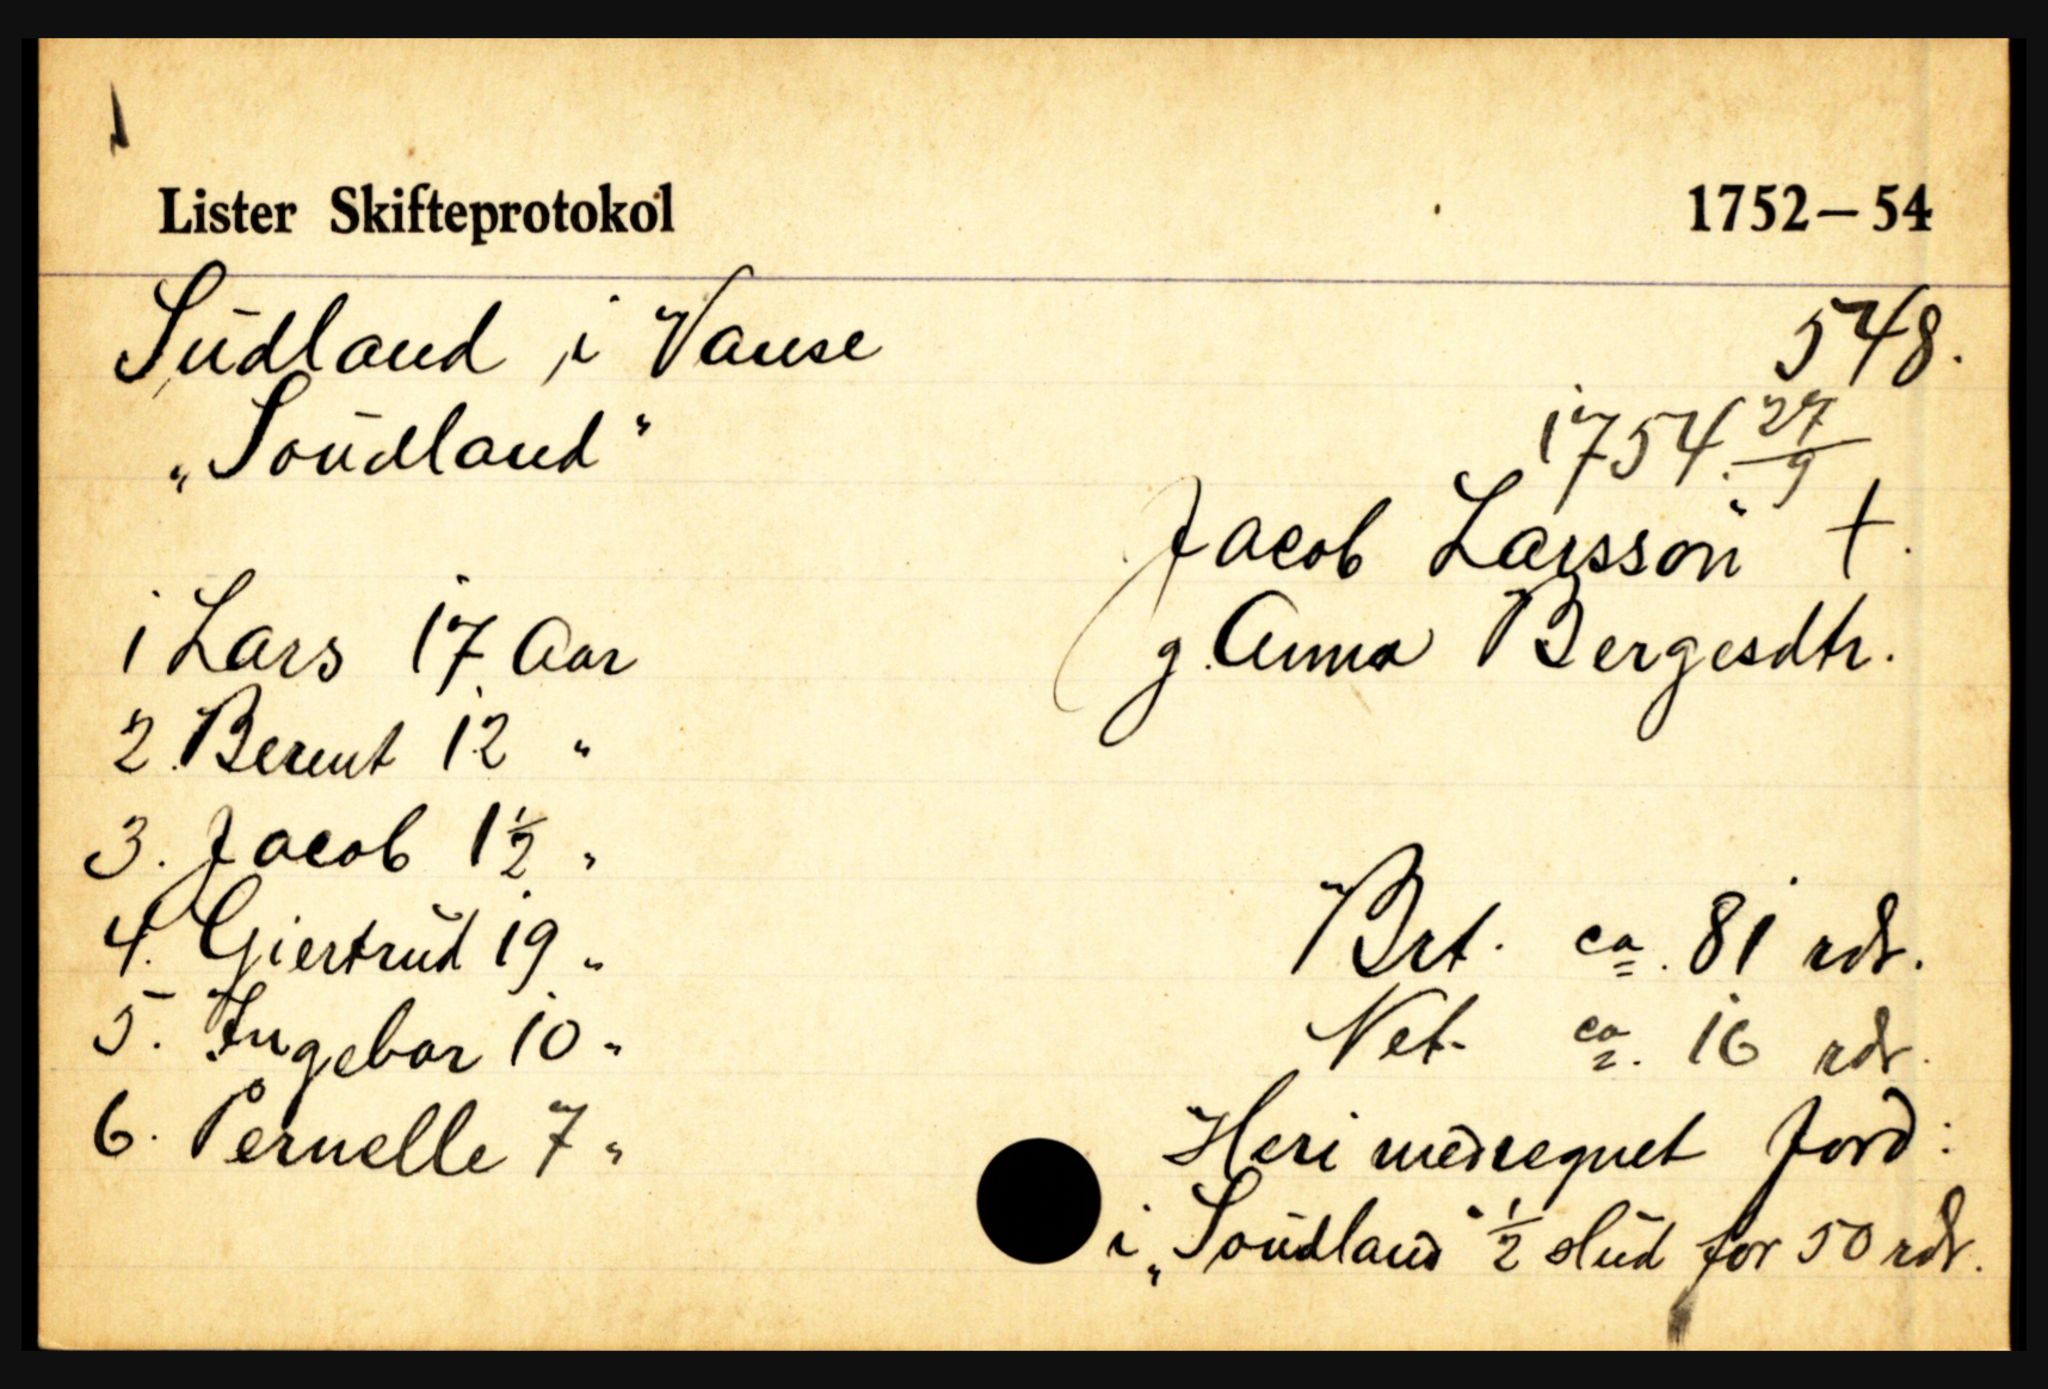 Lister Skifteprotokol 1752–54
Sudland i Vanse 548.
„Soudland" 1754 27/9
Jacob Larsson †.
g. Anna Bergesdtr.
1 Lars 17 Aar
2. Berent 12 "
3. Jacob 1½ "
4. Giertrud 19 "
5. Ingebor 10 "
6. Pernelle 7 "
Brt. ca. 81 rdr.
Net. ca. 16 rdr.
Heri medregnet Jord:
i „Soudland" ½ slud for 50 rdr.